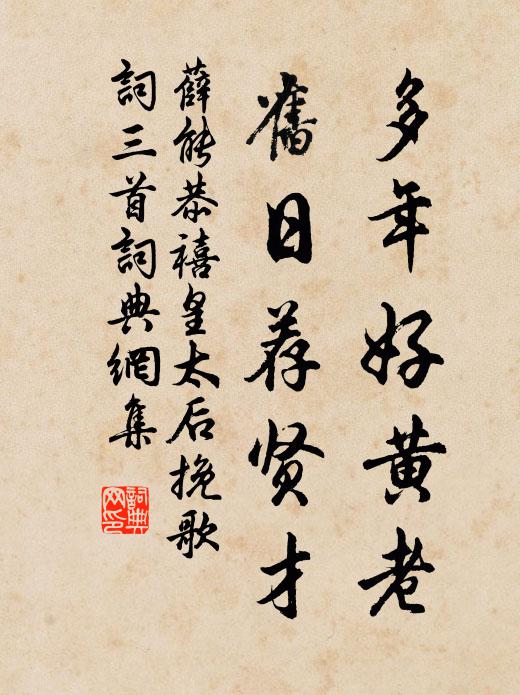 多年好黄老
舊日荐贤才
薛能恭禧皇太后挽歌
詞三首詞典網集
詞典网印